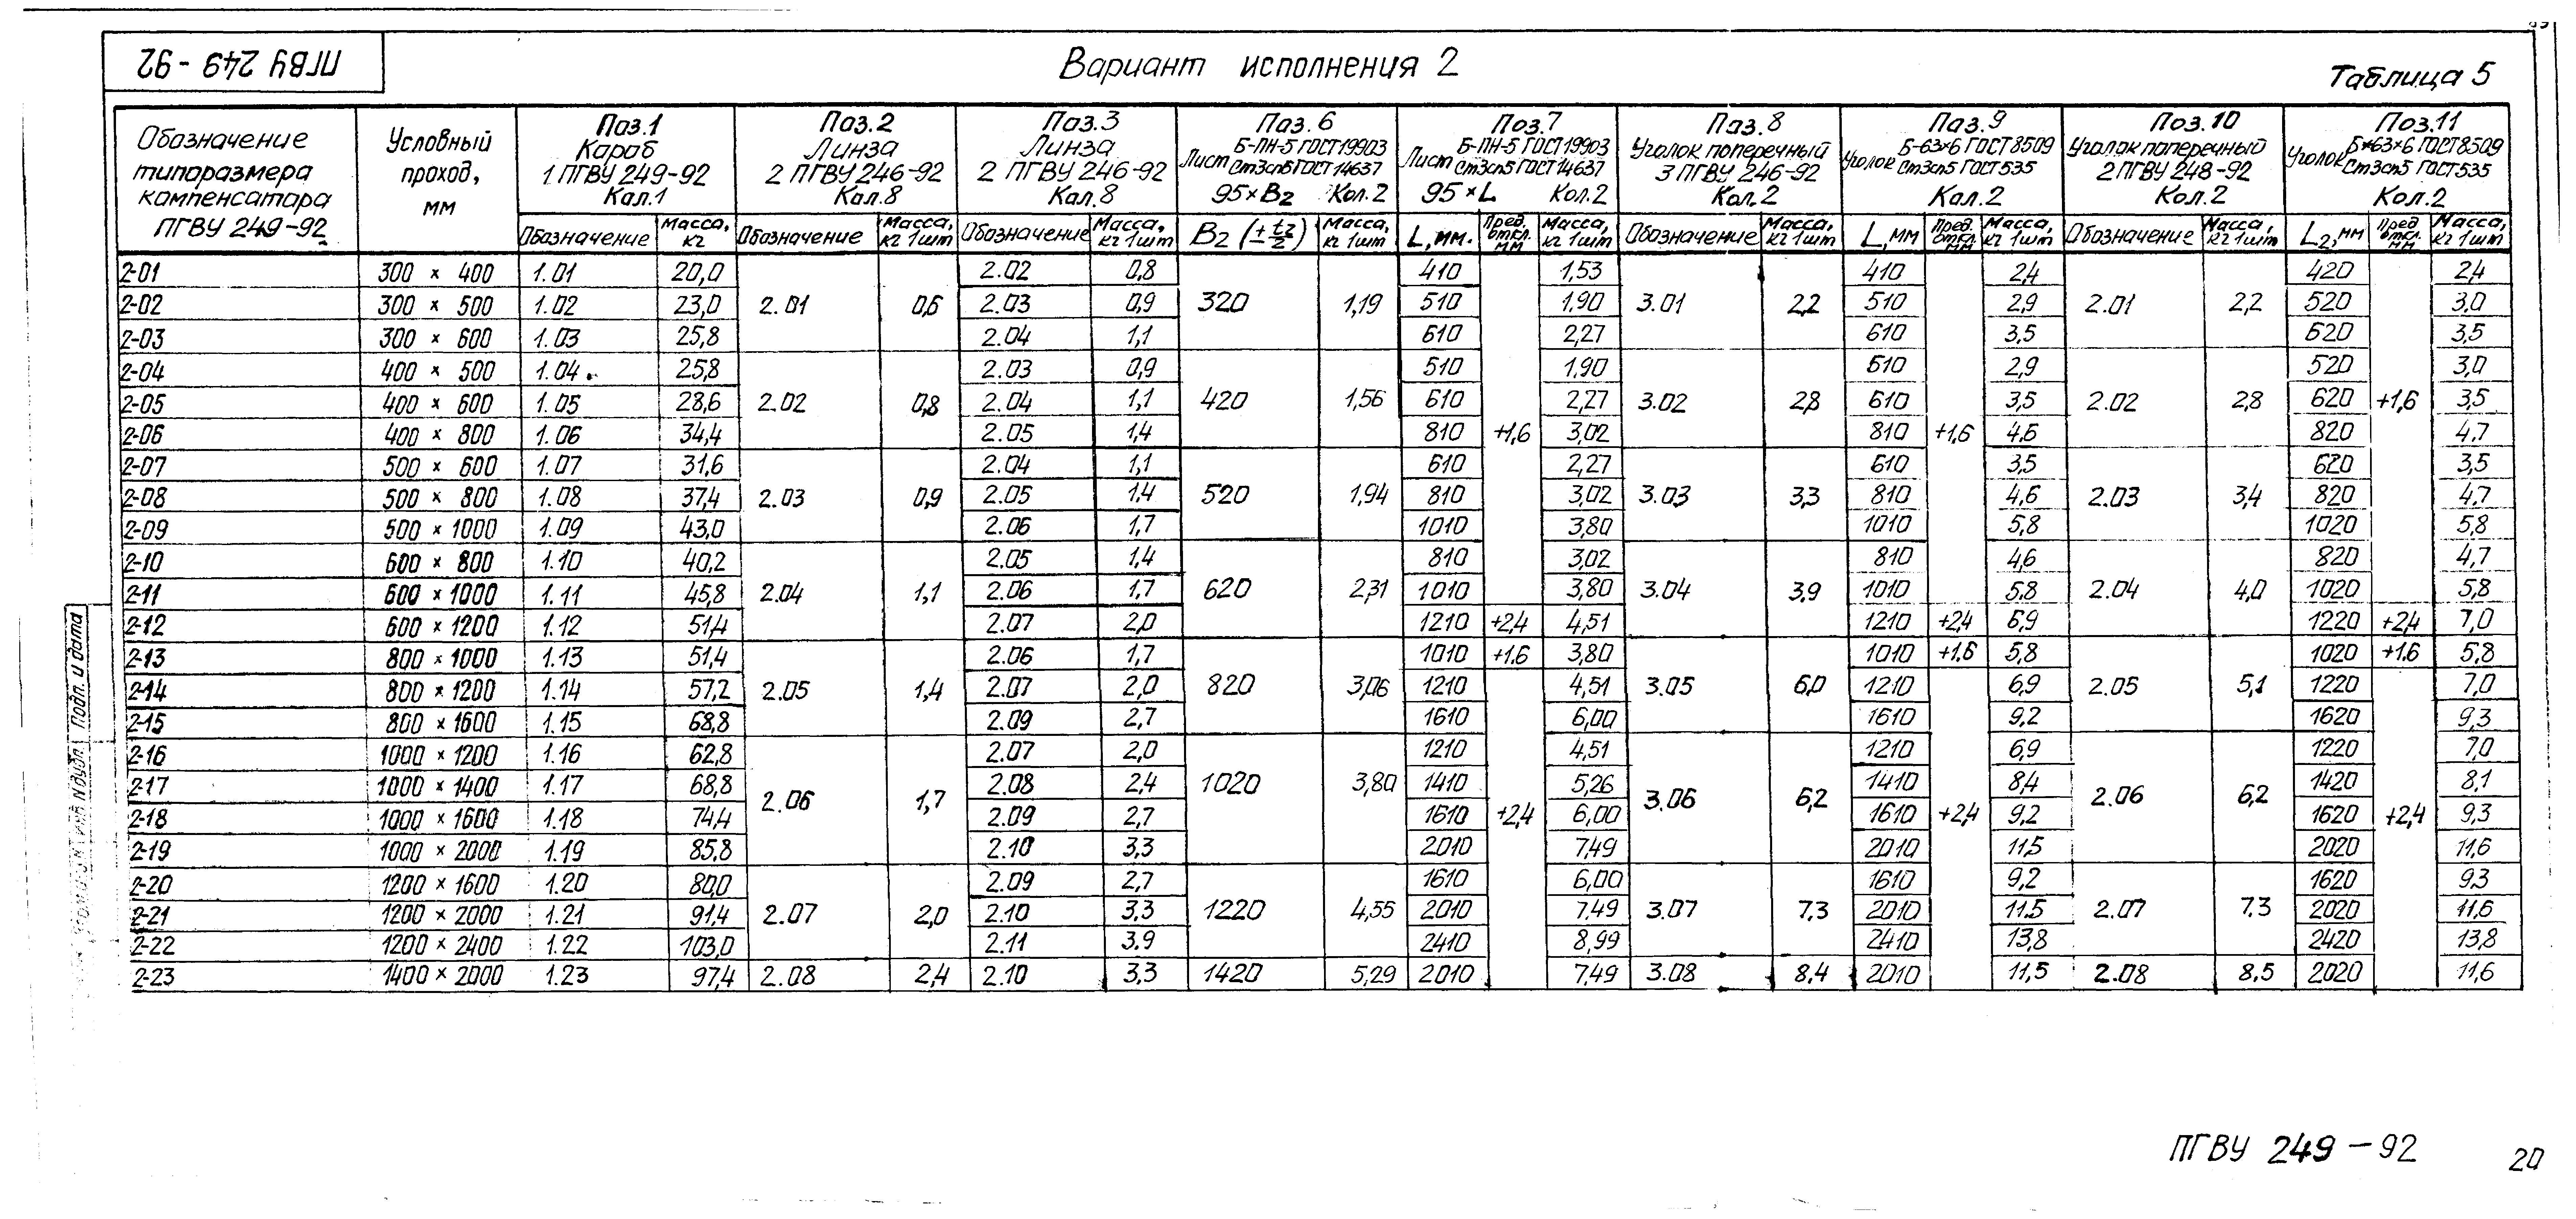 ПГВУ 249-92
Вариант исполнения 2
Таблица 5
Обозначение типоразмера компенсатора ПГВУ 249-92 | Условный проход, мм | Поз.1 Короб 1 ПГВУ 249-92 Кол.1 | Поз.2 Линза 2 ПГВУ 246-92 Кол.8 | Поз.3 Линза 2 ПГВУ 246-92 Кол.8 | Поз.6 Лист Б-ПН-5 ГОСТ19903 Ст3сп5 ГОСТ14637 95×B2 Кол.2 | Поз.7 Лист Б-ПН-5 ГОСТ19903 Ст3сп5 ГОСТ14637 95×L Кол.2 | Поз.8 Уголок поперечный 3 ПГВУ 246-92 Кол.2 | Поз.9 Уголок Б-63×6 ГОСТ8509 Ст3сп5 ГОСТ535 Кол.2 | Поз.10 Уголок поперечный 2 ПГВУ 248-92 Кол.2 | Поз.11 Уголок Б*63×6 ГОСТ8509 Ст3сп5 ГОСТ535 Кол.2
Обозначение | Масса, кг | Обозначение | Масса, кг 1шт | Обозначение | Масса, кг 1шт | B2 (± t2/2) | Масса, кг 1шт | L, мм. | Пред. откл. мм | Масса, кг 1шт | Обозначение | Масса, кг 1шт | L, мм | Пред. откл. мм | Масса, кг 1шт | Обозначение | Масса, кг 1шт | L2, мм | Пред. откл. мм | Масса, кг 1шт
2-01 | 300 × 400 | 1.01 | 20,0 | 2.02 | 0,8 | 410 | 1,53 | 410 | 2,4 | 420 | 2,4
2-02 | 300 × 500 | 1.02 | 23,0 | 2.01 | 0,6 | 2.03 | 0,9 | 320 | 1,19 | 510 | 1,90 | 3.01 | 2,2 | 510 | 2,9 | 2.01 | 2,2 | 520 | 3,0
2-03 | 300 × 600 | 1.03 | 25,8 | 2.04 | 1,1 | 610 | 2,27 | 610 | 3,5 | 620 | 3,5
2-04 | 400 × 500 | 1.04 | 25,8 | 2.03 | 0,9 | 510 | 1,90 | 510 | 2,9 | 520 | 3,0
2-05 | 400 × 600 | 1.05 | 28,6 | 2.02 | 0,8 | 2.04 | 1,1 | 420 | 1,56 | 610 | 2,27 | 3.02 | 2,8 | 610 | 3,5 | 2.02 | 2,8 | 620 | +1,6 | 3,5
2-06 | 400 × 800 | 1.06 | 34,4 | 2.05 | 1,4 | 810 | +1,6 | 3,02 | 810 | +1,6 | 4,6 | 820 | 4,7
2-07 | 500 × 600 | 1.07 | 31,6 | 2.04 | 1,1 | 610 | 2,27 | 610 | 3,5 | 620 | 3,5
2-08 | 500 × 800 | 1.08 | 37,4 | 2.03 | 0,9 | 2.05 | 1,4 | 520 | 1,94 | 810 | 3,02 | 3.03 | 3,3 | 810 | 4,6 | 2.03 | 3,4 | 820 | 4,7
2-09 | 500 × 1000 | 1.09 | 43,0 | 2.06 | 1,7 | 1010 | 3,80 | 1010 | 5,8 | 1020 | 5,8
2-10 | 600 × 800 | 1.10 | 40,2 | 2.05 | 1,4 | 810 | 3,02 | 810 | 4,6 | 820 | 4,7
2-11 | 600 × 1000 | 1.11 | 45,8 | 2.04 | 1,1 | 2.06 | 1,7 | 620 | 2,31 | 1010 | 3,80 | 3.04 | 3,9 | 1010 | 5,8 | 2.04 | 4,0 | 1020 | 5,8
2-12 | 600 × 1200 | 1.12 | 51,4 | 2.07 | 2,0 | 1210 | +2,4 | 4,51 | 1210 | +2,4 | 6,9 | 1220 | +2,4 | 7,0
2-13 | 800 × 1000 | 1.13 | 51,4 | 2.06 | 1,7 | 1010 | +1,6 | 3,80 | 1010 | +1,6 | 5,8 | 1020 | +1.6 | 5,8
2-14 | 800 × 1200 | 1.14 | 57,2 | 2.05 | 1,4 | 2.07 | 2,0 | 820 | 3,06 | 1210 | 4,51 | 3.05 | 6,0 | 1210 | 6,9 | 2.05 | 5,1 | 1220 | 7,0
2-15 | 800 × 1600 | 1.15 | 68,8 | 2.09 | 2,7 | 1610 | 6,00 | 1610 | 9,2 | 1620 | 9,3
2-16 | 1000 × 1200 | 1.16 | 62,8 | 2.07 | 2,0 | 1210 | 4,51 | 1210 | 6,9 | 1220 | 7,0
2-17 | 1000 × 1400 | 1.17 | 68,8 | 2.06 | 1,7 | 2.08 | 2,4 | 1020 | 3,80 | 1410 | 5,26 | 3.06 | 6,2 | 1410 | 8,4 | 2.06 | 6,2 | 1420 | 8,1
2-18 | 1000 × 1600 | 1.18 | 74,4 | 2.09 | 2,7 | 1610 | +2,4 | 6,00 | 1610 | +2,4 | 9,2 | 1620 | +2,4 | 9,3
2-19 | 1000 × 2000 | 1.19 | 85,8 | 2.10 | 3,3 | 2010 | 7,49 | 2010 | 11,5 | 2020 | 11,6
2-20 | 1200 × 1600 | 1.20 | 80,0 | 2.09 | 2,7 | 1610 | 6,00 | 1610 | 9,2 | 1620 | 9,3
2-21 | 1200 × 2000 | 1.21 | 91,4 | 2.07 | 2,0 | 2.10 | 3,3 | 1220 | 4,55 | 2010 | 7,49 | 3.07 | 7,3 | 2010 | 11,5 | 2.07 | 7,3 | 2020 | 11,6
2-22 | 1200 × 2400 | 1.22 | 103,0 | 2.11 | 3.9 | 2410 | 8,99 | 2410 | 13,8 | 2420 | 13,8
2-23 | 1400 × 2000 | 1.23 | 97,4 | 2.08 | 2,4 | 2.10 | 3,3 | 1420 | 5,29 | 2010 | 7,49 | 3.08 | 8,4 | 2010 | 11,5 | 2.08 | 8,5 | 2020 | 11,6
Подп. и дата
ПГВУ 249-92
20